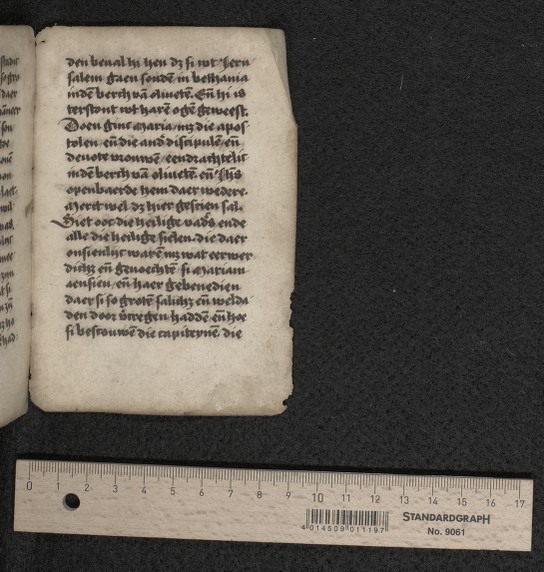 den beual hi hen dz si wt Ieru
salem gaen souden in bethania
inden berch vā oliueten. Eñ hi is
terstont wt harē ogē geweest.
Doen ginc maria mz die apos
tolen, eñ die and discipulē, eñ
deuote vrouwē, eendrachtelic
inden berch vā oliuetē. eñ Ihs
openbaerde hem daer wedere.
Merct wel dz hier gescien sal.
Siet ooc die heilige vads ende
alle die heilige sielen. die daer
onsienlijc warē mz wat eerwer
dichz eñ genoechtē si Mariam
aensien, eñ haer gebenedien
daer si so grotē salichz eñ welda
den door vcregen haddē. eñ hoe
si bescouwē die capiteynē die
0 1 2 3 4 5 6 7 8 9 10 11 12 13 14 15 16 17
4 014509 011197
STANDARDGRAPH
No. 9061